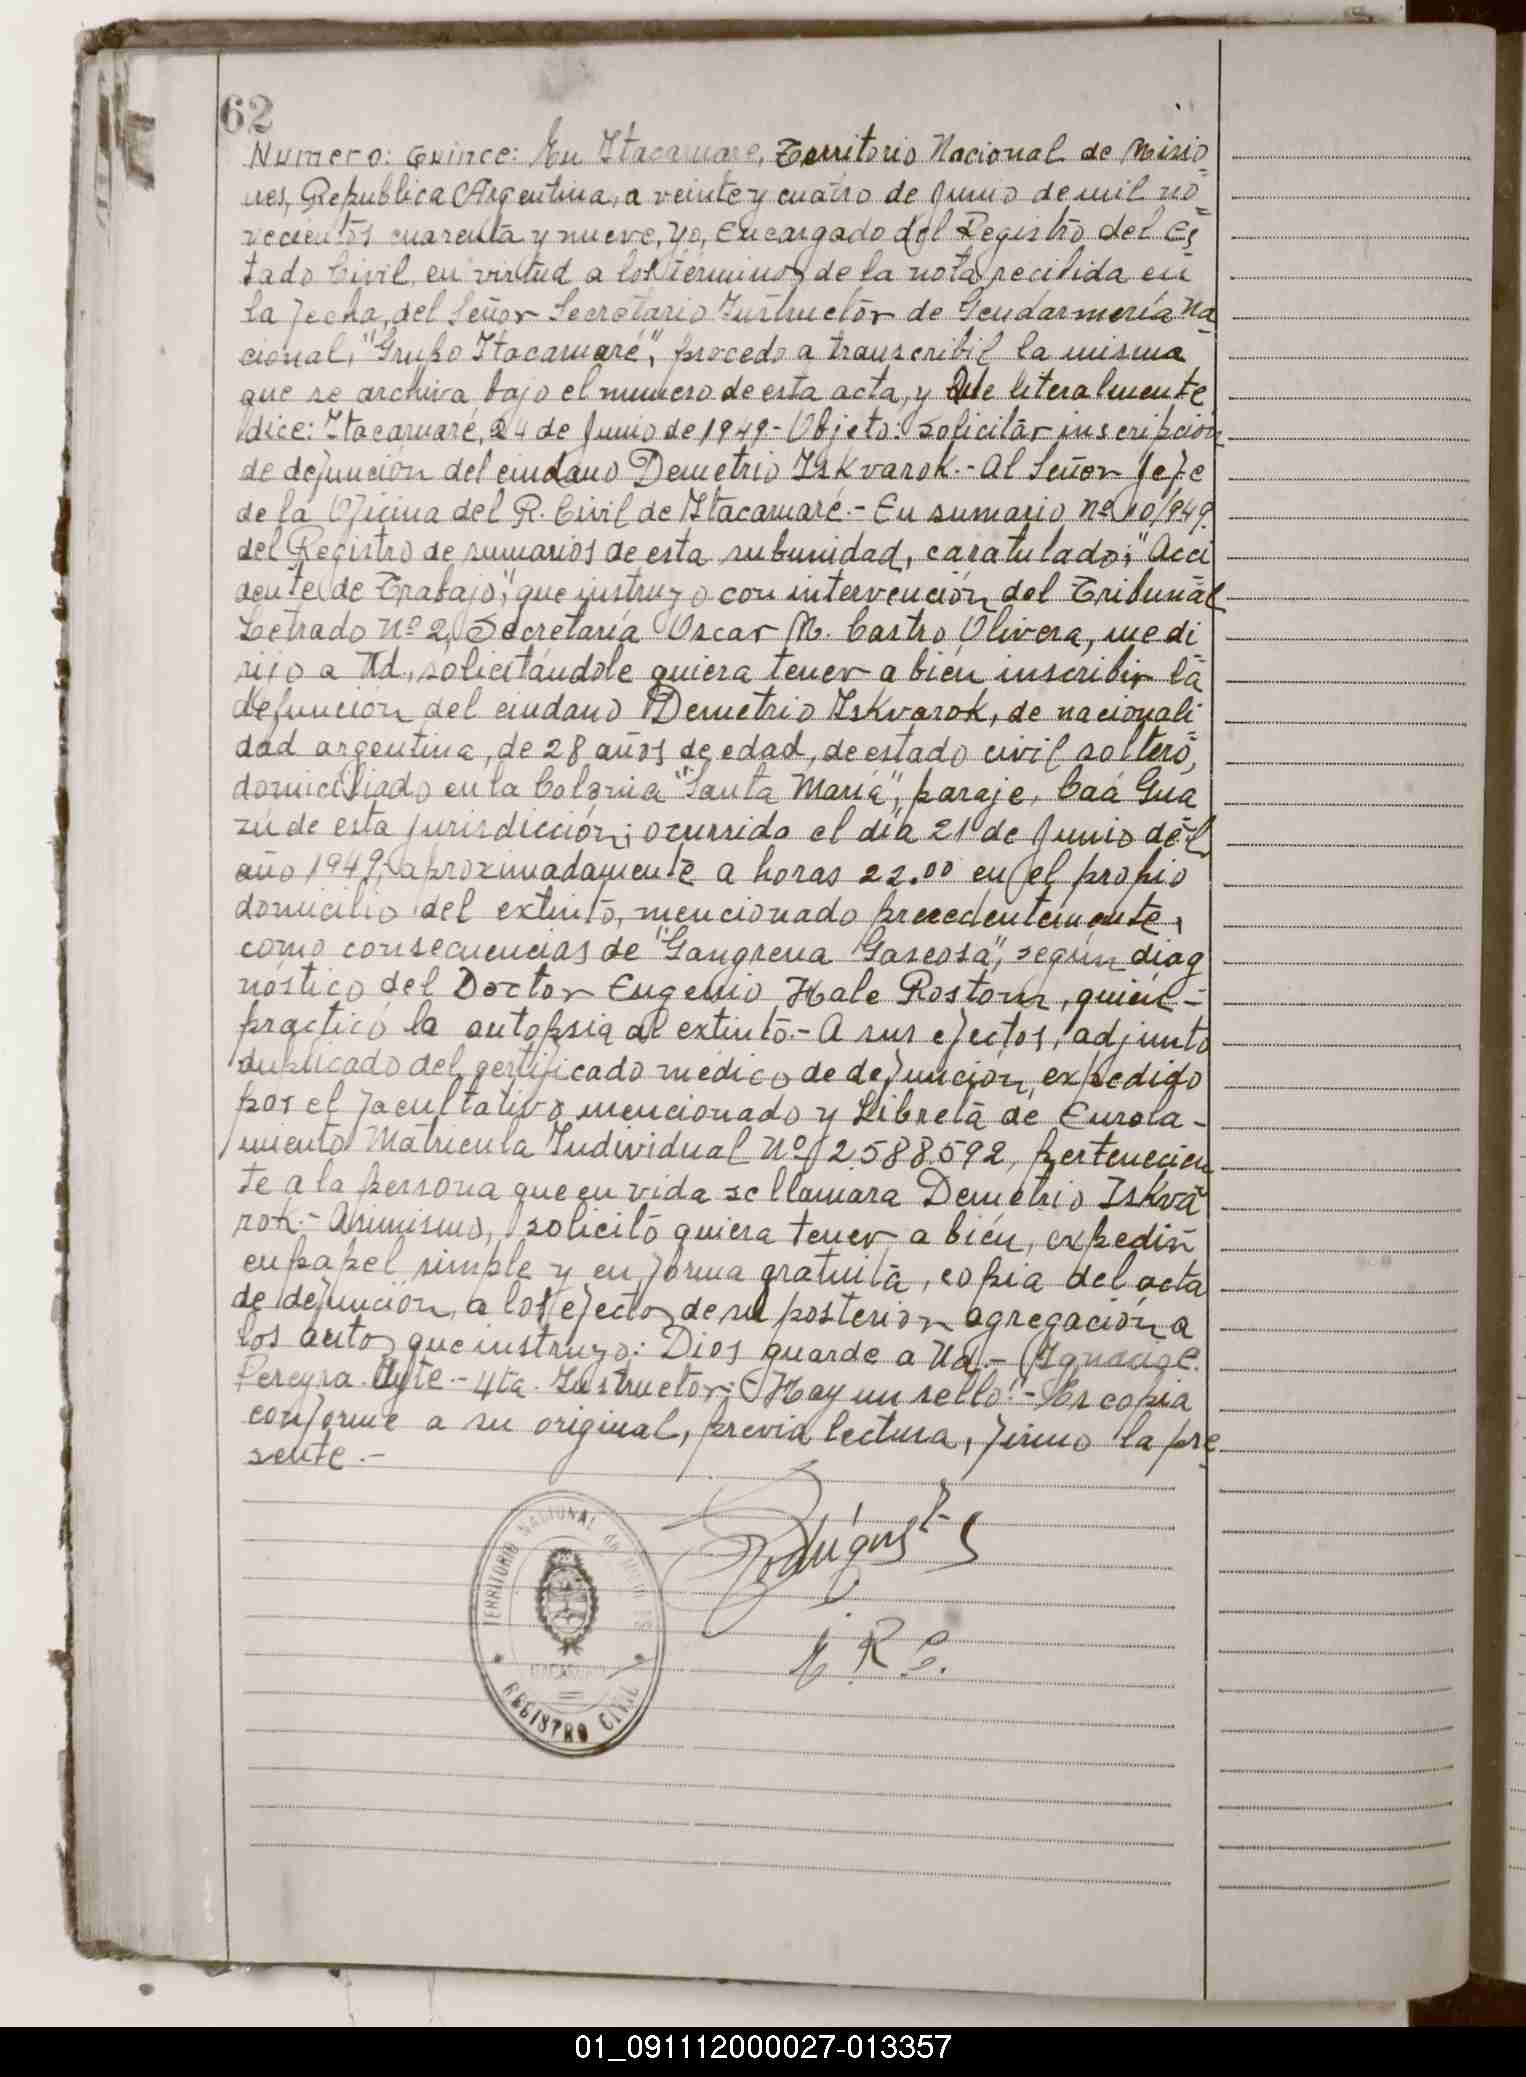 62
Numero: Quince: En Itacaruare, Territorio Nacional de Misio
nes, Republica Argentina, a veinte y cuatro de Junio de mil no
vecientos cuarenta y nueve, yo, Encargado del Registro del Es
tado Civil, en virtud a los términos de la nota recibida en
la fecha, del Señor Secretario Instructor de Gendarmería Na
cional, "Grupo Itacaruaré", procedo a transcribil la misma
que se archiva bajo el numero de esta acta, y Que literalmente
dice: Itacaruaré, 24 de Junio de 1949.- Objeto: solicitar inscripción
de defunción del ciudano Demetrio Iskvarok.- Al Señor Jefe
de la Oficina del R. Civil de Itacaruaré.- En sumario Nº 10/949.
del Registro de sumarios de esta subunidad, caratulado; "Acci
dente de Trabajo", que instruyo con intervención del Tribunal
Letrado Nº 2, Secretaría Oscar M. Castro Olivera, me di
rijo a Ud., solicitándole quiera tener a bien inscribir la
defunción del ciudano Demetrio Iskvarok, de nacionali
dad argentina, de 28 años de edad, de estado civil soltero,
domiciliado en la Colonia "Santa María", paraje, Caá Gua
zú de esta jurisdicción; ocurrida el día 21 de Junio del
año 1949, aproximadamente a horas 22.00 en el propio
domicilio del extinto, mencionado precedentemente,
como consecuencias de "Gangrena Gaseosa", según diag
nóstico del Doctor Eugenio Hale Rostom, quién -
practicó la autopsia al extinto.- A sus efectos, adjunto
duplicado del certificado médico de defunción, expedido
por el facultativo mencionado y Libreta de Enrola-
miento Matricula Individual Nº 2.588.592, pertenecien
te a la persona que en vida se llamara Demetrio Iskva
rok.- Asimismo, solicitó quiera tener a bién, expedir
en papel simple y en forma gratuita, copia del acta
de defunción, a los efectos de su posterior agregación a
los autos que instruyo: Dios guarde a Ud.- Ignacio C.
Pereyra. Ayte.- 4ta. Instructor.- Hay un sello.- Es copia
conforme a su original, previa lectura, firmo la pre
sente.-
TERRITORIO NACIONAL de MISIONES
ITACARUARE
REGISTRO CIVIL
E. R. C.
01_091112000027-013357